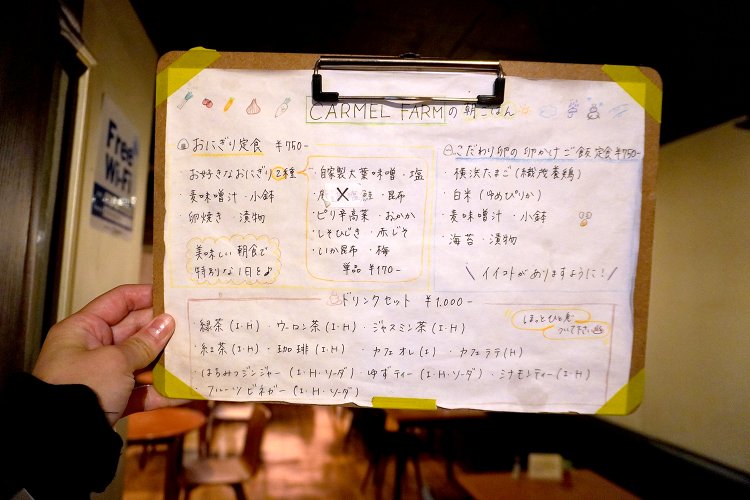 Free
Wi-Fi
CARMEL FARMの朝ごはん
おにぎり定食 ¥750-
お好きなおにぎり2種
麦味噌汁・小鉢
卵焼き・漬物
美味しい朝食で
特別な1日を♪
・自家製大葉味噌・塩
鮭・昆布
・ピリ辛高菜・おかか
・しそひじき・赤じそ
・いか昆布・梅
単品 ¥170-
こだわり卵の卵かけご飯定食¥750-
・横浜たまご(
・白米(ゆめぴりか)
・麦味噌汁・小鉢
・海苔・漬物
\ イイコトがありますように! /
ドリンクセット ¥1,000-
ほっとひと息
ついて下さい
・緑茶(I・H)・ウーロン茶(I・H)・ジャスミン茶(I・H)
・紅茶(I・H)・珈琲(I・H)・カフェオレ(I)・カフェラテ(H)
・はちみつジンジャー(I・H・ソーダ)・ゆずティー(I・H・ソーダ)・シナモンティー(I・H)
・フルーツビネガー(I・H・ソーダ)